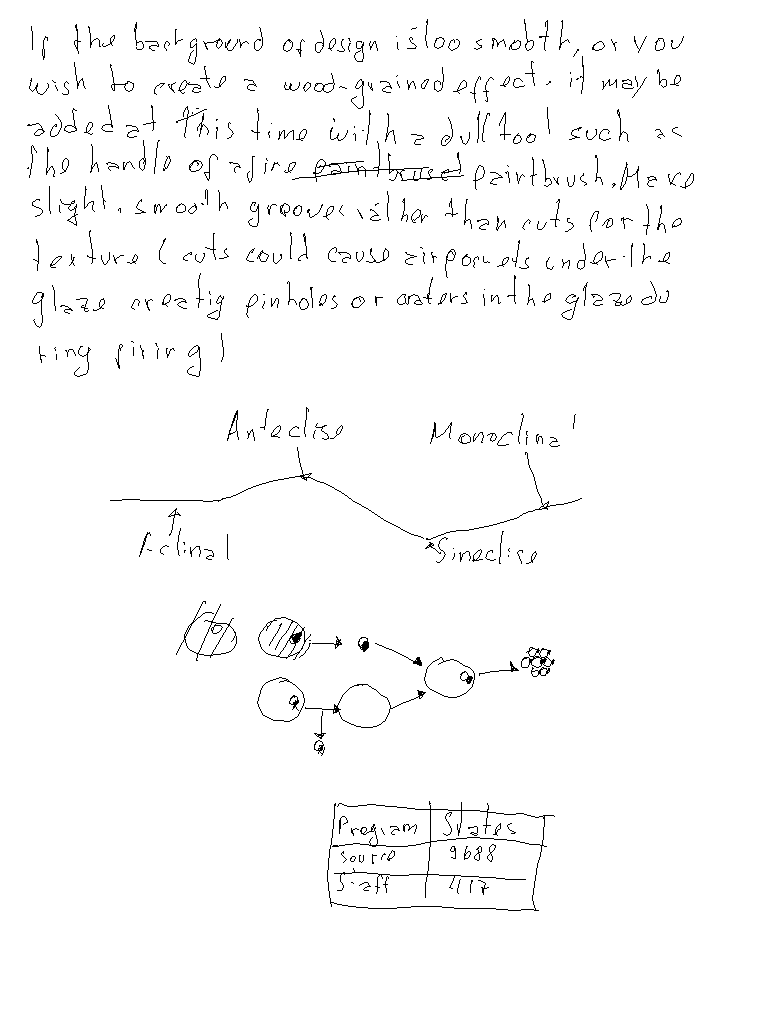 If the background of design is too smooth, or you
wish to create a wood-grained effect. it may be
added at this time with a dull tool such as
the handle of a fine paintbrush. Make
slight. smooth grooves rather than cuts for the
texture (cuts could cause air pockets under the
glaze creatig pinholes or craters in the glaze du
ring firing)
Anteclise Monoclinal
Aclinal Sineclise
Program States
Source 9688
Staff 417